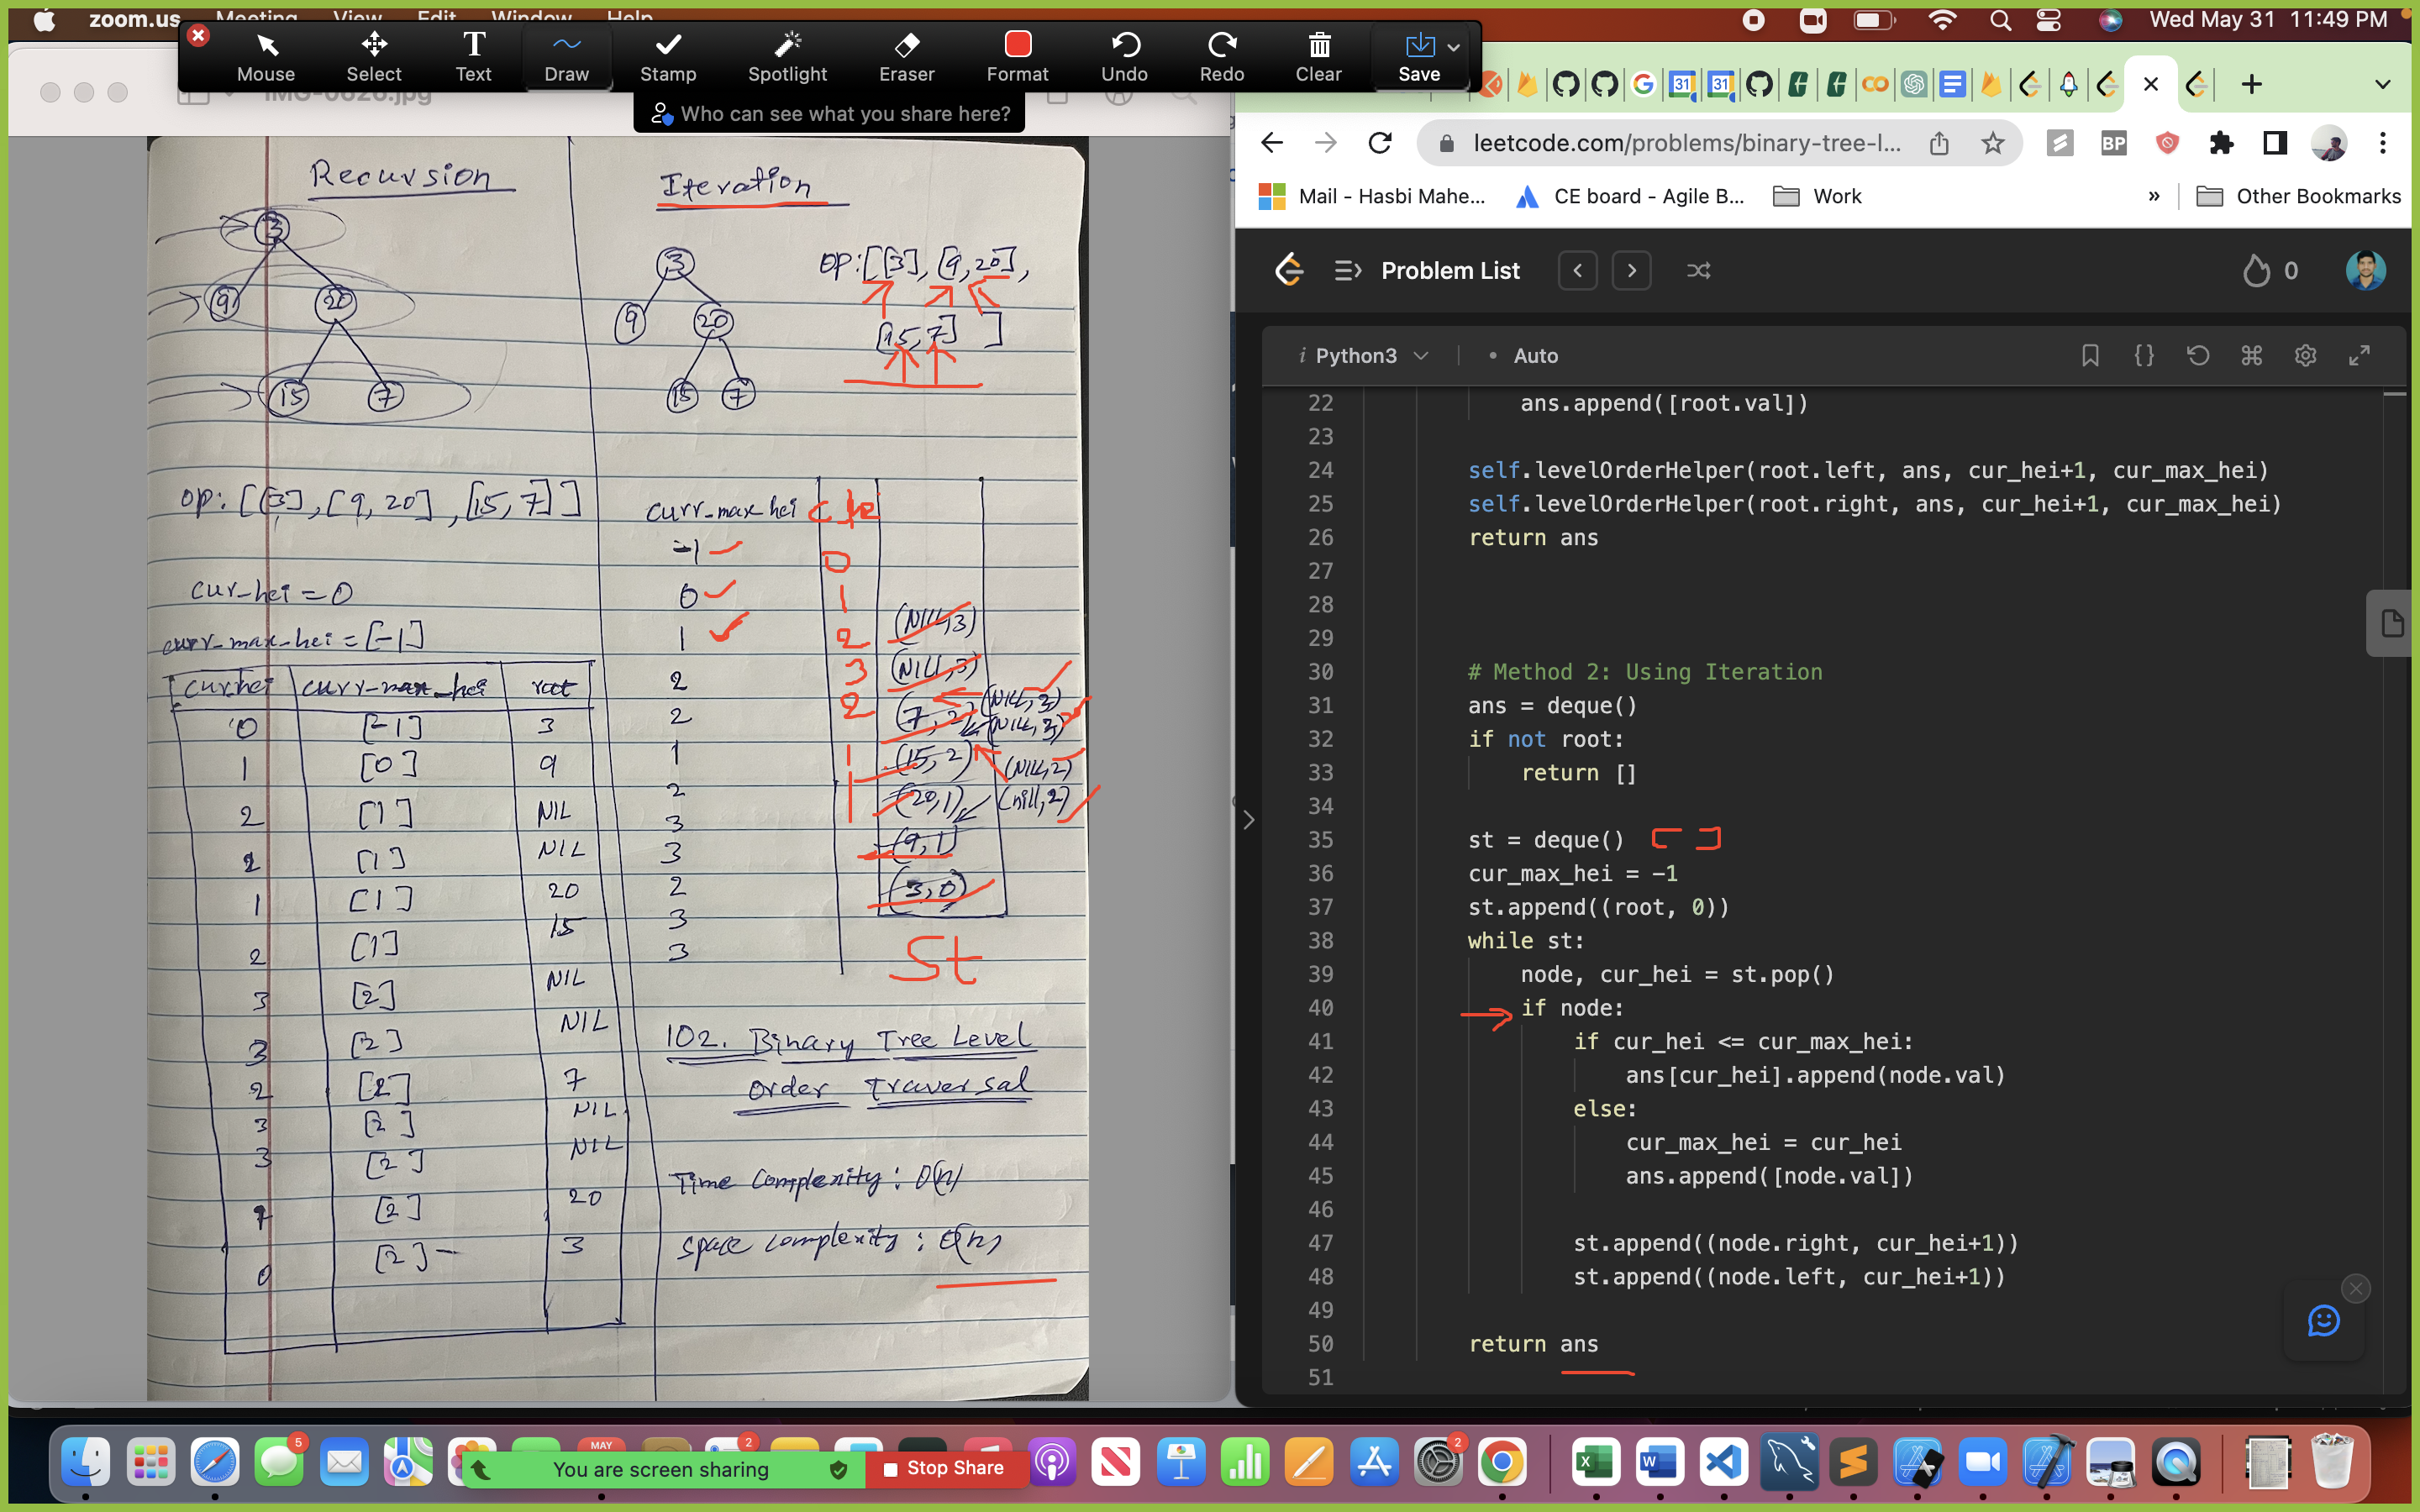 zoom.us Meeting View Edit Window Help
Wed May 31 11:49 PM
Mouse Select Text Draw Stamp Spotlight Eraser Format Undo Redo Clear Save
Who can see what you share here?
IMG-0626.jpg
Recursion
3
9 20
15 7
op: [[3], [9, 20], [15, 7]]
cur_hei = 0
curr_max_hei = [-1]
cur_hei curr_max_hei root
0 [-1] 3
1 [0] 9
2 [1] NIL
2 [1] NIL
1 [1] 20
2 [1] 15
3 [2] NIL
3 [2] NIL
2 [2] 7
3 [2] NIL
3 [2] NIL
1 [2] 20
0 [2] 3
Iteration
3
9 20
15 7
op: [[3], [9, 20],
[15, 7] ]
curr_max_hei
-1
0
1
2
2
1
2
3
3
2
3
3
0
1
2
3
2
1
1
(NILL, 3)
(NILL, 3)
(7, 2) (NILL, 3)
(NILL, 3)
(15, 2) (NILL, 2)
(20, 1) (nill, 2)
(9, 1)
(3, 0)
St
102. Binary Tree Level
Order Traversal
Time Complexity: O(n)
Space Complexity: O(n)
leetcode.com/problems/binary-tree-l...
BP
Mail - Hasbi Mahe... CE board - Agile B... Work » Other Bookmarks
Problem List 0
Python3 • Auto
22 ans.append([root.val])
23
24 self.levelOrderHelper(root.left, ans, cur_hei+1, cur_max_hei)
25 self.levelOrderHelper(root.right, ans, cur_hei+1, cur_max_hei)
26 return ans
27
28
29
30 # Method 2: Using Iteration
31 ans = deque()
32 if not root:
33 return []
34
35 st = deque() [ ]
36 cur_max_hei = -1
37 st.append((root, 0))
38 while st:
39 node, cur_hei = st.pop()
40 if node:
41 if cur_hei <= cur_max_hei:
42 ans[cur_hei].append(node.val)
43 else:
44 cur_max_hei = cur_hei
45 ans.append([node.val])
46
47 st.append((node.right, cur_hei+1))
48 st.append((node.left, cur_hei+1))
49
50 return ans
51
You are screen sharing Stop Share
5
MAY
2
2